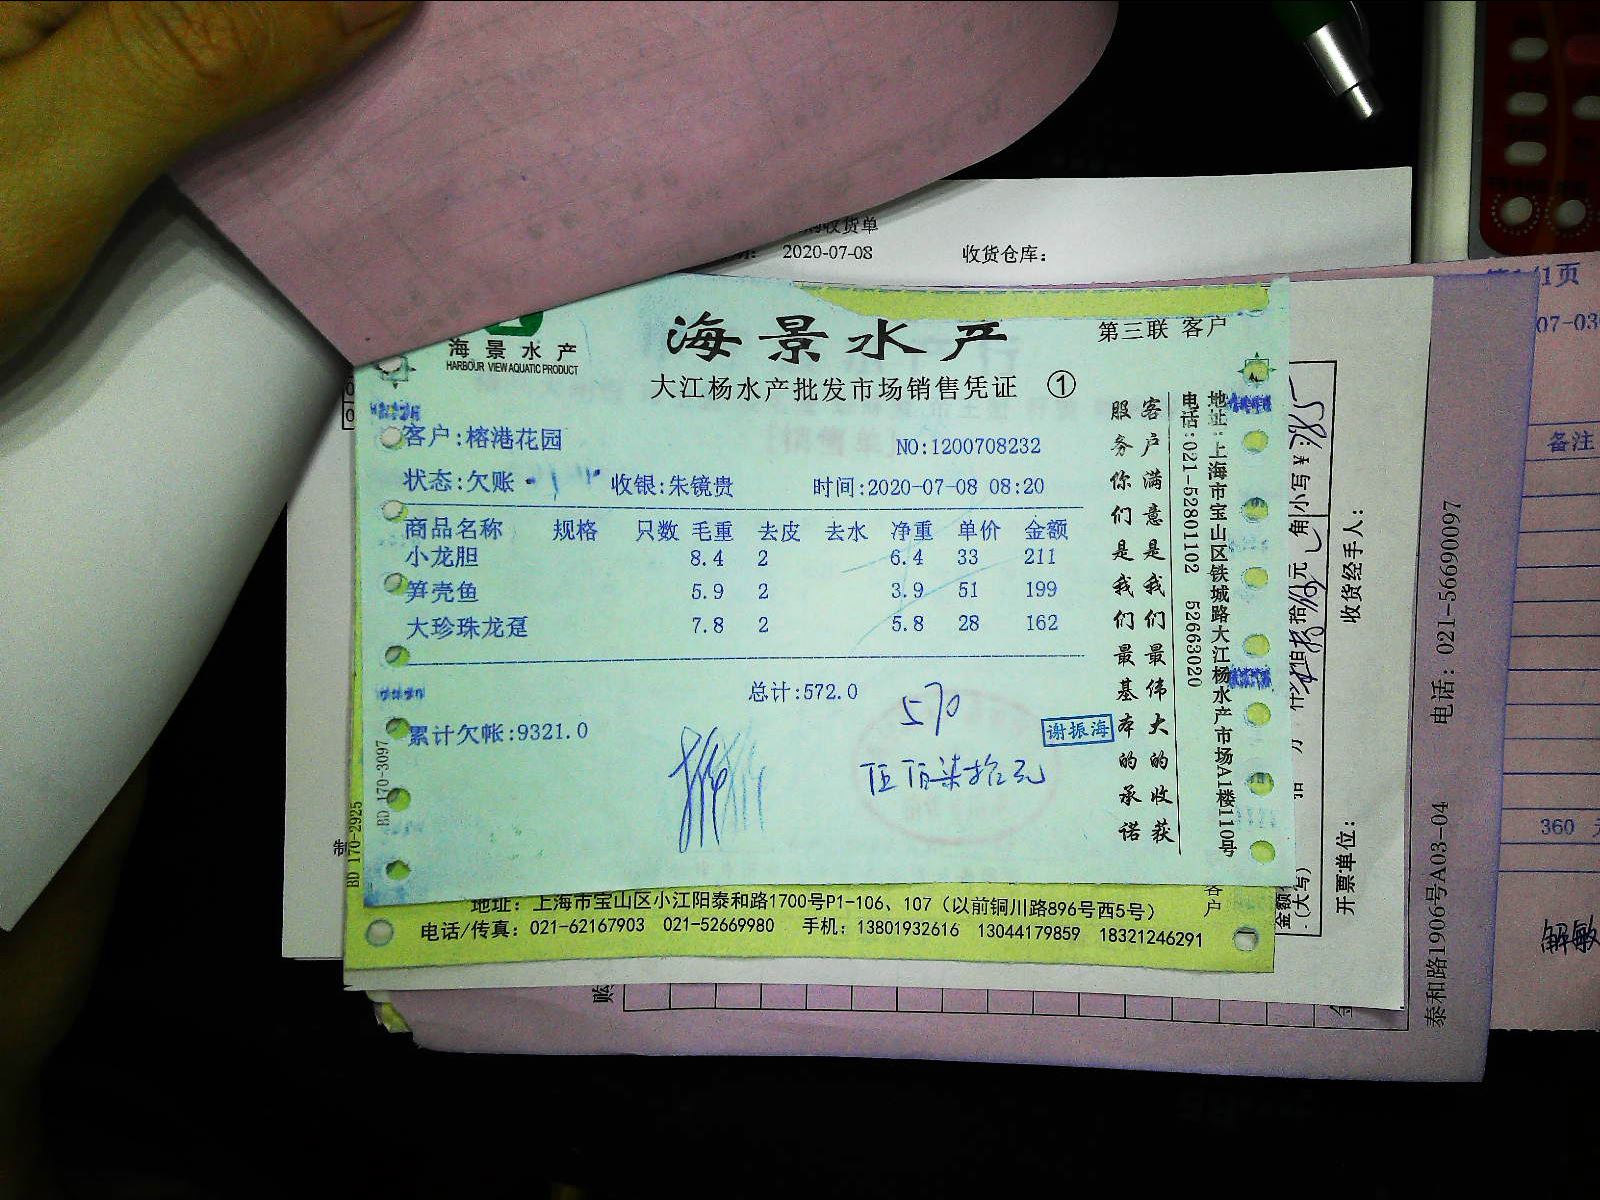 收货单
2020-07-08 收货仓库：
海景水产
HARBOUR VIEW AQUATIC PRODUCT
海景水产
第三联 客户
大江杨水产批发市场销售凭证 ①
客户:榕港花园
NO:1200708232
状态:欠账 收银:朱镜贵 时间:2020-07-08 08:20
商品名称 规格 只数 毛重 去皮 去水 净重 单价 金额
小龙胆 8.4 2 6.4 33 211
笋壳鱼 5.9 2 3.9 51 199
大珍珠龙趸 7.8 2 5.8 28 162
总计:572.0
570
累计欠帐:9321.0
谢振海
伍佰柒拾元
客户满意是我们最伟大的收获
服务你们是我们最基本的承诺
地址:上海市宝山区铁城路大江杨水产市场A1楼110号
电话:021-52801102 52663020
BD 170-3097
BD 170-2925
地址：上海市宝山区小江阳泰和路1700号P1-106、107（以前铜川路896号西5号）
电话/传真：021-62167903 021-52669980 手机：13801932616 13044179859 18321246291
客户
制
购
小写￥
角
元
拾
金额
(大写)
收货经手人：
开票单位：
电话：021-56690097
泰和路1906号A03-04
1页
07-03
备注
360
解敏